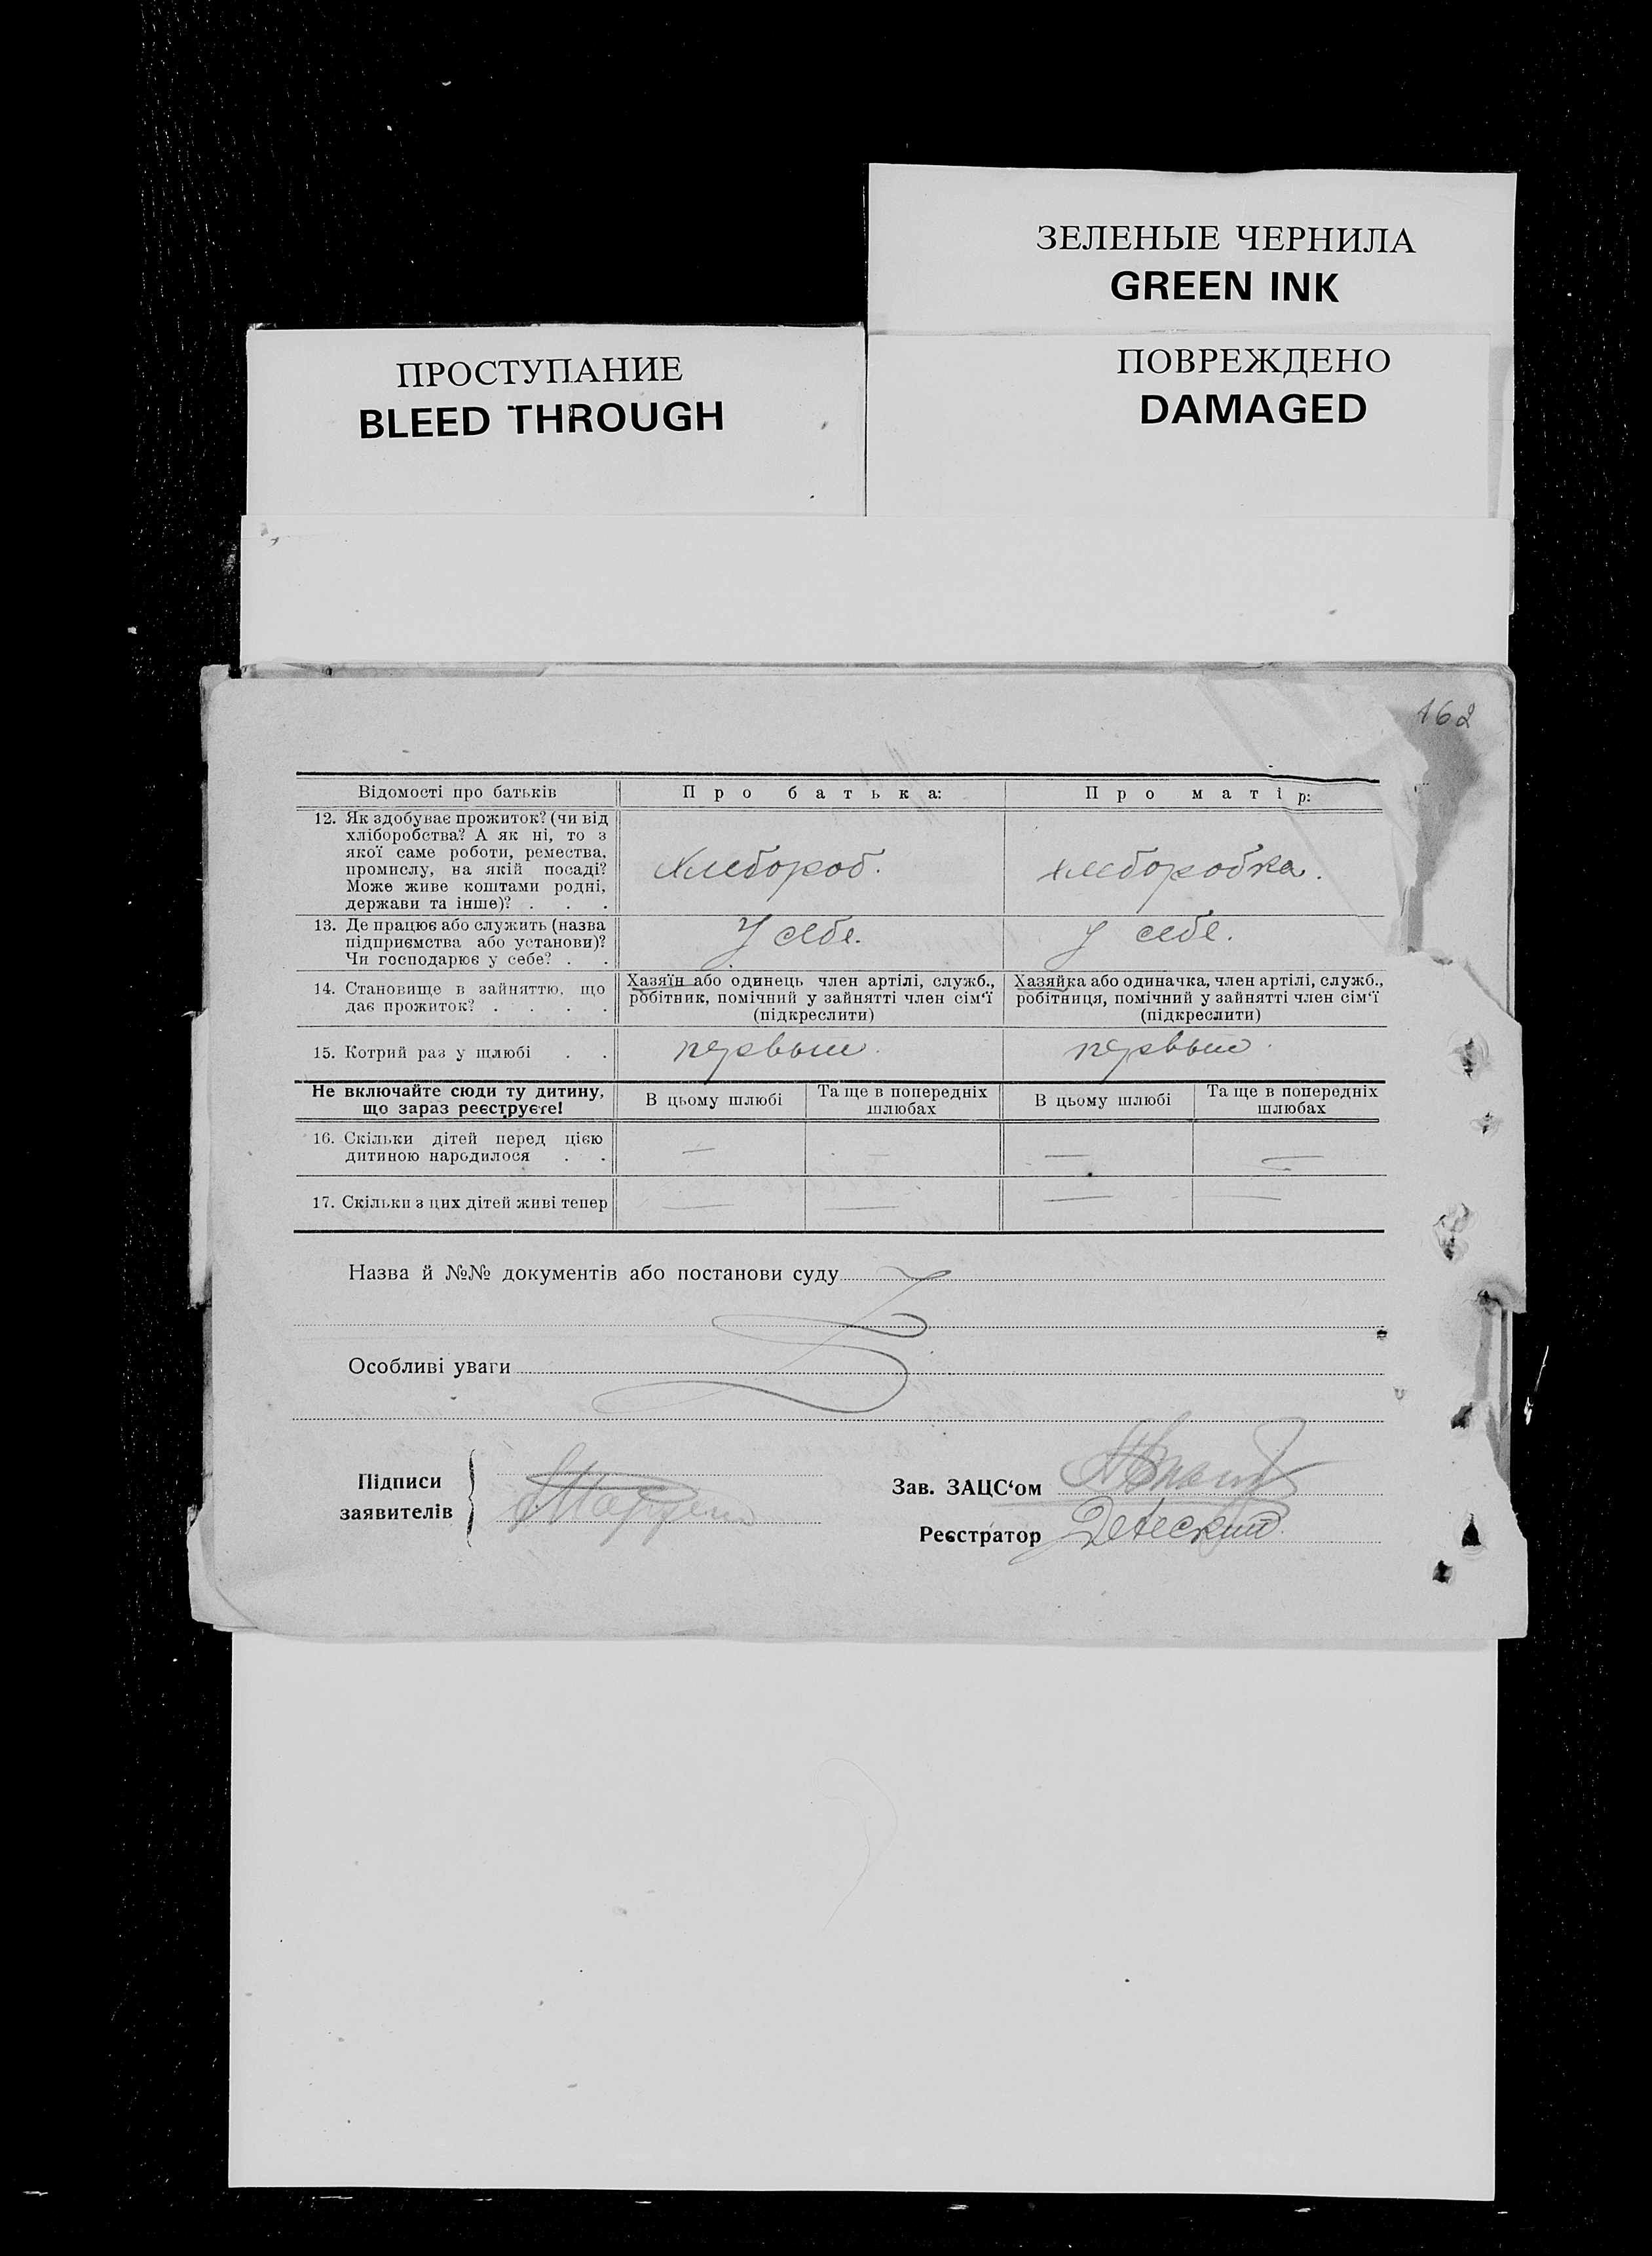 ЗЕЛЕНЫЕ ЧЕРНИЛА
GREEN INK
ПРОСТУПАНИЕ
BLEED THROUGH
ПОВРЕЖДЕНО
DAMAGED
162
Відомості про батьків
Про батька:
Про матір:
12. Як здобуває прожиток? (чи від
хліборобства? А як ні, то з
якої саме роботи, ремества,
промислу, на якій посаді?
Може живе коштами родні,
держави та інше)? . . .
Хлебороб.
хлеборобка.
13. Де працює або служить (назва
підприємства або установи)?
Чи господарює у себе? . .
У себе.
У себе.
14. Становище в зайняттю, що
дає прожиток? . . . .
Хазяїн або одинець член артілі, служб.,
робітник, помічний у зайнятті член сім'ї
(підкреслити)
Хазяйка або одиначка, член артілі, служб.,
робітниця, помічний у зайнятті член сім'ї
(підкреслити)
15. Котрий раз у шлюбі . .
первый.
первый.
Не включайте сюди ту дитину,
що зараз реєструєте!
В цьому шлюбі
Та ще в попередніх
шлюбах
В цьому шлюбі
Та ще в попередніх
шлюбах
16. Скільки дітей перед цією
дитиною народилося . .
— — — —
17. Скільки з цих дітей живі тепер
— — — —
Назва й №№ документів або постанови суду
Особливі уваги
Підписи
заявителів
Зав. ЗАЦС'ом
Реєстратор